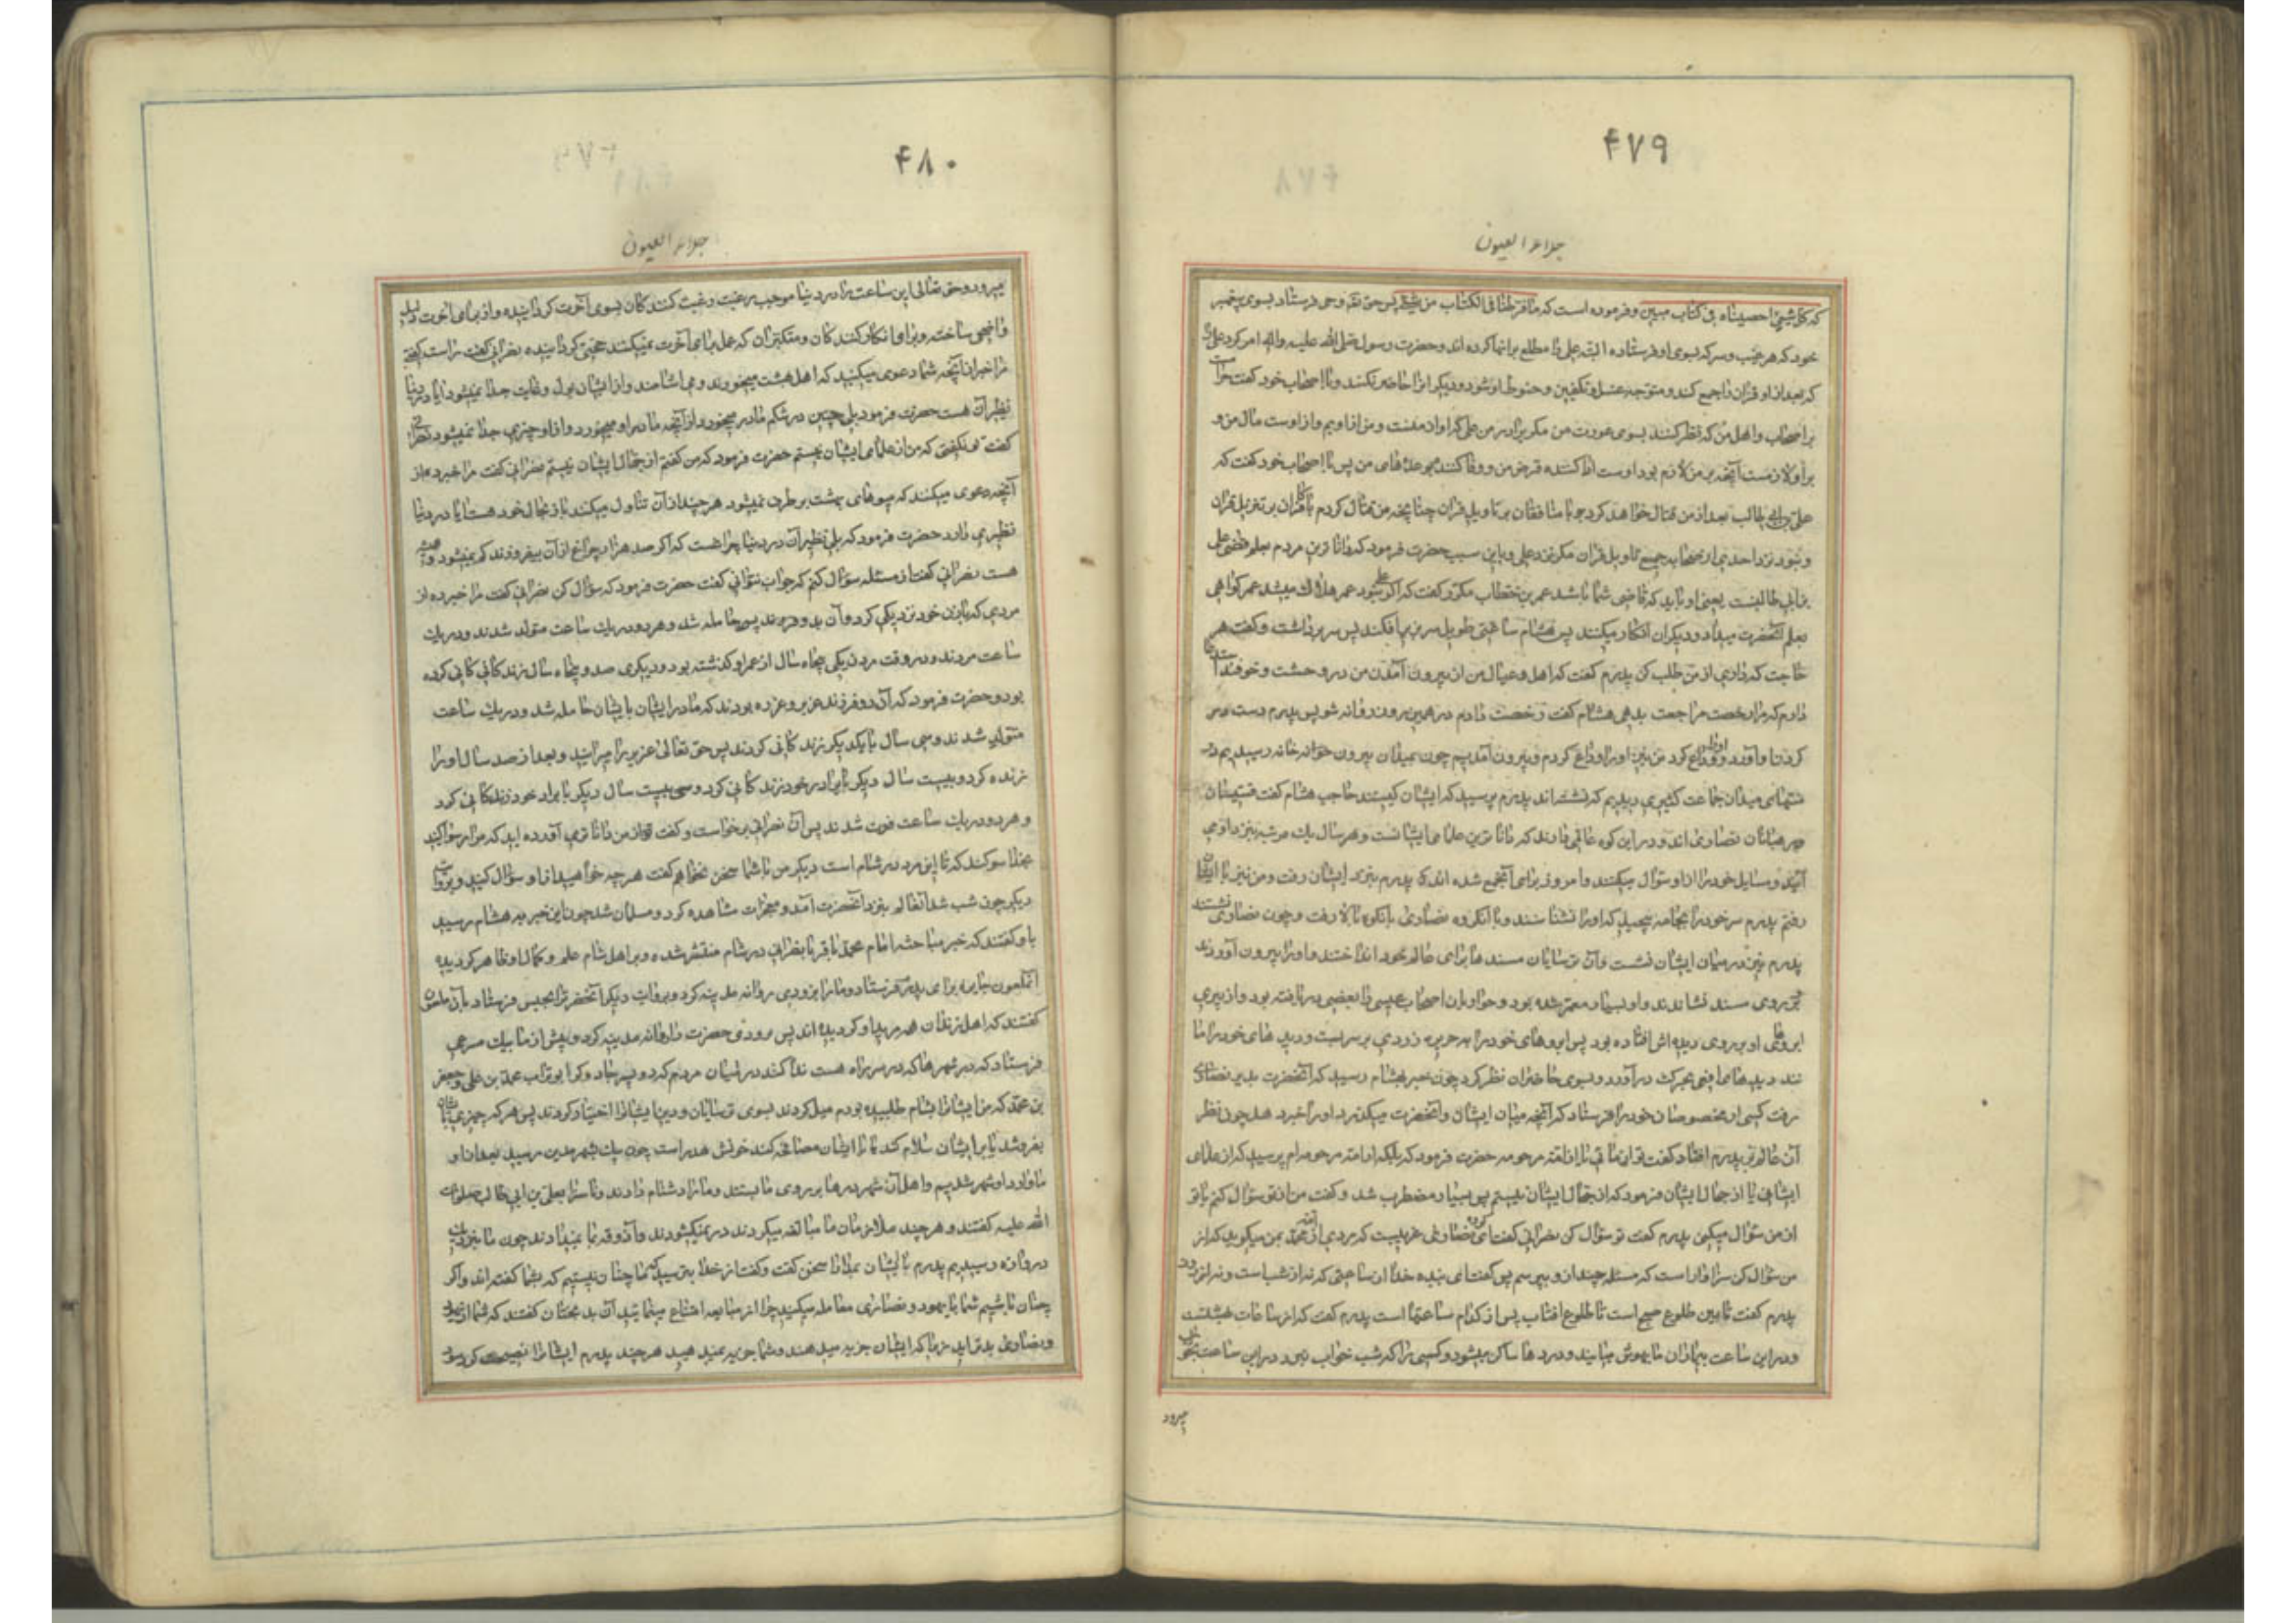 ۴۷۹
جلاء العیون
که کل شیئ احصیناه فی کتاب مبین و فرموده است که ما فرطنا فی الکتاب من شیئ پس حق تعـ وحی فرستاد بسوی پیغمبر
خود که هر غیب و سر که بسوی او فرستاده البته علی را مطلع بر انها کرده اند و حضرت رسول صلی الله علیه واله امر کرد علی را
که بعد از او قران را جمع کند و متوجه غسل و تکفین و حنوط او شود و دیگرانرا حاضر نکند و با اصحاب خود گفت حرامست
بر اصحاب و اهل من که نظر کنند بسوی عورت من مگر برادر من علی که او از منست و من از اویم و از اوست مال من و
بر او لازمست آنچه بر من لازم بود و اوست ادا کننده قرض من و وفا کننده بوعدهای من پس با اصحاب خود گفت که
علی بن ابی طالب بعد از من قتال خواهد کرد با منافقان بر تاویل قران چنانچه من قتال کردم با کافران بر تنزیل قران
و نبود نزد احدی از صحابه جمیع تاویل قران مگر نزد علی و باین سبب حضرت فرمود که داناترین مردم بعلم قضا علی
بن ابی طالبست یعنی او باید که قاضی شما باشد عمر بن خطاب مکرر گفت که اگر علی نبود عمر هلاک میشد عمر گواهی
بعلم آنحضرت میداد و دیگران انکار میکنند پس هشام ساعتی طویل سر بزیر افکند پس سر برداشت و گفت هر
حاجت که داری از من طلب کن پدرم گفت که اهل و عیال من از بیرون آمدن من در وحشت و خوفند استدعا
دارم که مرا رخصت مراجعت بدهی هشام گفت رخصت دادم در همین روز روانه شو پس پدرم دست در
گردن او آورد و وداع کرد من نیز او را وداع کردم و بیرون آمدیم چون بمیدان بیرون خوانه خانه رسیدیم در
منتهای میدان جماعت کثیری دیدیم که نشسته اند پدرم پرسید که ایشان کیستند حاجب هشام گفت قسیسان
و رهبانان نصاری اند و در این کوه عالمی دارند که داناترین علمای ایشانست و هر سال یک مرتبه بنزد او می
آیند و مسایل خود را از او سوال میکنند و امروز برای آن جمع شده اند پدرم بنزد ایشان رفت و من نیز با ایشان
رفتم پدرم سر خود را بجامه پیچید که او را نشناسند و با آنگروه نصاری بانکوه بالا رفت و چون نصاری نشستند
پدرم نیز در میان ایشان نشست و آن ترسایان مسندها برای عالم خود انداختند و او را بیرون آوردند
و بر روی مسند نشاندند و او بسیار معمر شده بود و حواریان اصحاب عیسی را بعضی دریافته بود و از پیری
ابروهای او بر روی دیده اش افتاده بود پس ابروهای خود را بحریر زردی بر سر بست و دیده های خود را مانند
دیدهای افعی بحرکت در آورد و بسوی حاضران نظر کرد چون خبر بهشام رسید که آنحضرت بدیر نصاری
رفت کسی از مخصوصان خود را فرستاد که آنچه میان ایشان و آنحضرت میگذرد او را خبر دهد چون نظر
آن عالم بر پدرم افتاد گفت تو از مائی یا از امت مرحومه حضرت فرمود که بلکه از امت مرحومه ام پرسید که از علمای
ایشانی یا از جهال ایشان فرمود که از جهال ایشان نیستم پس بسیار مضطرب شد و گفت من از تو سوال کنم یا تو
از من سوال میکنی پدرم گفت تو سوال کن نصرانی گفت ای گروه نصاری غریبست که مردی از امت محمد بمن میگوید که از
من سوال کن سزاوار است که مسئله چند از و بپرسم پس گفت ای بنده خدا از ساعتی که نه از شب است و نه از روز
پدرم گفت مابین طلوع صبح است تا طلوع افتاب پس از کدام ساعتها است پدرم گفت که از ساعات بهشتست
و در این ساعت بیماران ما بهوش میایند و دردها ساکن میشود و کسی را که شب خواب نبرد در این ساعت بخواب
میرود
۴۸۰
جلاء العیون
میرود و حق تعالی این ساعت را در دنیا موجب رغبت رغبت کنندکان بسوی آخرت گردانیده و از برای اخرت دلیل
واضحی ساخته و برای انکار کنندکان و متکبران که عمل برای آخرت نمیکنند حجتی گردانیده نصرانی گفت راست گفتی
مرا خبر از آنچه شما دعوی میکنید که اهل بهشت میخورند و می اشامند و از ایشان بول و غایت جدا نمیشود ایا در دنیا
نظیر آن هست حضرت فرمود بلی جنین در شکم مادر میخورد از آنچه مادر او میخورد و از او چیزی جدا نمیشود نصرانی
گفت تو نگفتی که من از علمای ایشان نیستم حضرت فرمود که من گفتم از جهال ایشان نیستم نصرانی گفت مرا خبر ده از
آنچه دعوی میکنند که میوهای بهشت برطرف نمیشود هر چند از آن تناول میکنند باز بحال خود هست ایا در دنیا
نظیری دارد حضرت فرمود که بلی نظیر آن در دنیا چراغست که اگر صد هزار چراغ از آن بیفروزند کم نمیشود و همیشه
هست نصرانی گفت از مسئله سوال کنم که جواب نتوانی گفت حضرت فرمود که سوال کن نصرانی گفت مرا خبر ده از
مردی که با زن خود نزدیکی کرد و آن بدو فرزند حامله شد و هر دو در یک ساعت متولد شدند و در یک
ساعت مردند و در وقت مردن یکی پنجاه سال از عمر او گذشته بود و دیگری صد و پنجاه سال زندگانی کرده
بود حضرت فرمود که آن دو فرزند عزیر و عزره بودند که مادر ایشان بایشان حامله شد و در یک ساعت
متولد شدند و سی سال با یکدیگر زندگانی کردند پس حق تعالی عزیر را میرانید و بعد از صد سال او را
زنده کرد و بیست سال دیگر با برادر خود زندگانی کرد و سی بیست سال دیگر با برادر خود زندکانی کرد
و هر دو در یک ساعت فوت شدند پس آن نصرانی برخواست و گفت از من داناتری آورده اید که مرا رسوا کنید
بخدا سوگند که تا این مرد در شام است دیگر من با شما سخن نخواهم گفت هر چه خواهید از او سوال کنید و بروایت
دیگر چون شب شد آنعالم بنزد آنحضرت آمد و معجزات مشاهده کرد و مسلمان شد چون این خبر به هشام رسید
باو گفتند که خبر مباحثه امام محمد باقر با نصرانی در شام منتشر شده و بر اهل شام علم و کمال او ظاهر گردیده
آنملعون جایزه برای پدرم فرستاد و ما را بزودی روانه مدینه کرد و بروایت دیگر آنحضرترا بمجلس فرستاد بآن ملعون
گفتند که اهل زندان همه مرید او گردیده اند پس بزودی حضرت را روانه مدینه کرد و پیش از ما پیک سرعی
فرستاد که در شهرها که در سر راه هست ندا کنند در میان مردم که دو پسر جادوگر ابوتراب محمد بن علی و جعفر
بن محمد که من ایشانرا بشام طلبیده بودم میل کردند بسوی ترسایان و دین ایشانرا اختیار کردند پس هر که چیزی بایشان
بفروشد یا بر ایشان سلام کند یا با ایشان مصافحه کند خونش هدر است چون پیک بشهر مدین رسید بعد از او
ما وارد آن شهر شدیم و اهل آن شهر درها بر روی ما بستند و ما را دشنام دادند و ناسزا بعلی بن ابی طالب صلوات
الله علیه گفتند و هر چند ملازمان ما مبالغه میکردند در نمیگشودند و آذوقه بما نمیدادند چون ما بنزدیک
دروازه رسیدیم پدرم با ایشان بمدارا سخن گفت و گفت از خدا بترسید ما چنان نیستیم که بشما گفته اند و اگر
چنان باشیم شما با یهود و نصاری معامله میکنید چرا از مبایعه امتناع مینمائید آن بدبختان گفتند که شما از یهود
و نصاری بدترید زیرا که ایشان جزیه میدهند و شما جزیه نمیدهید هر چند پدرم ایشانرا نصیحت کرد سود